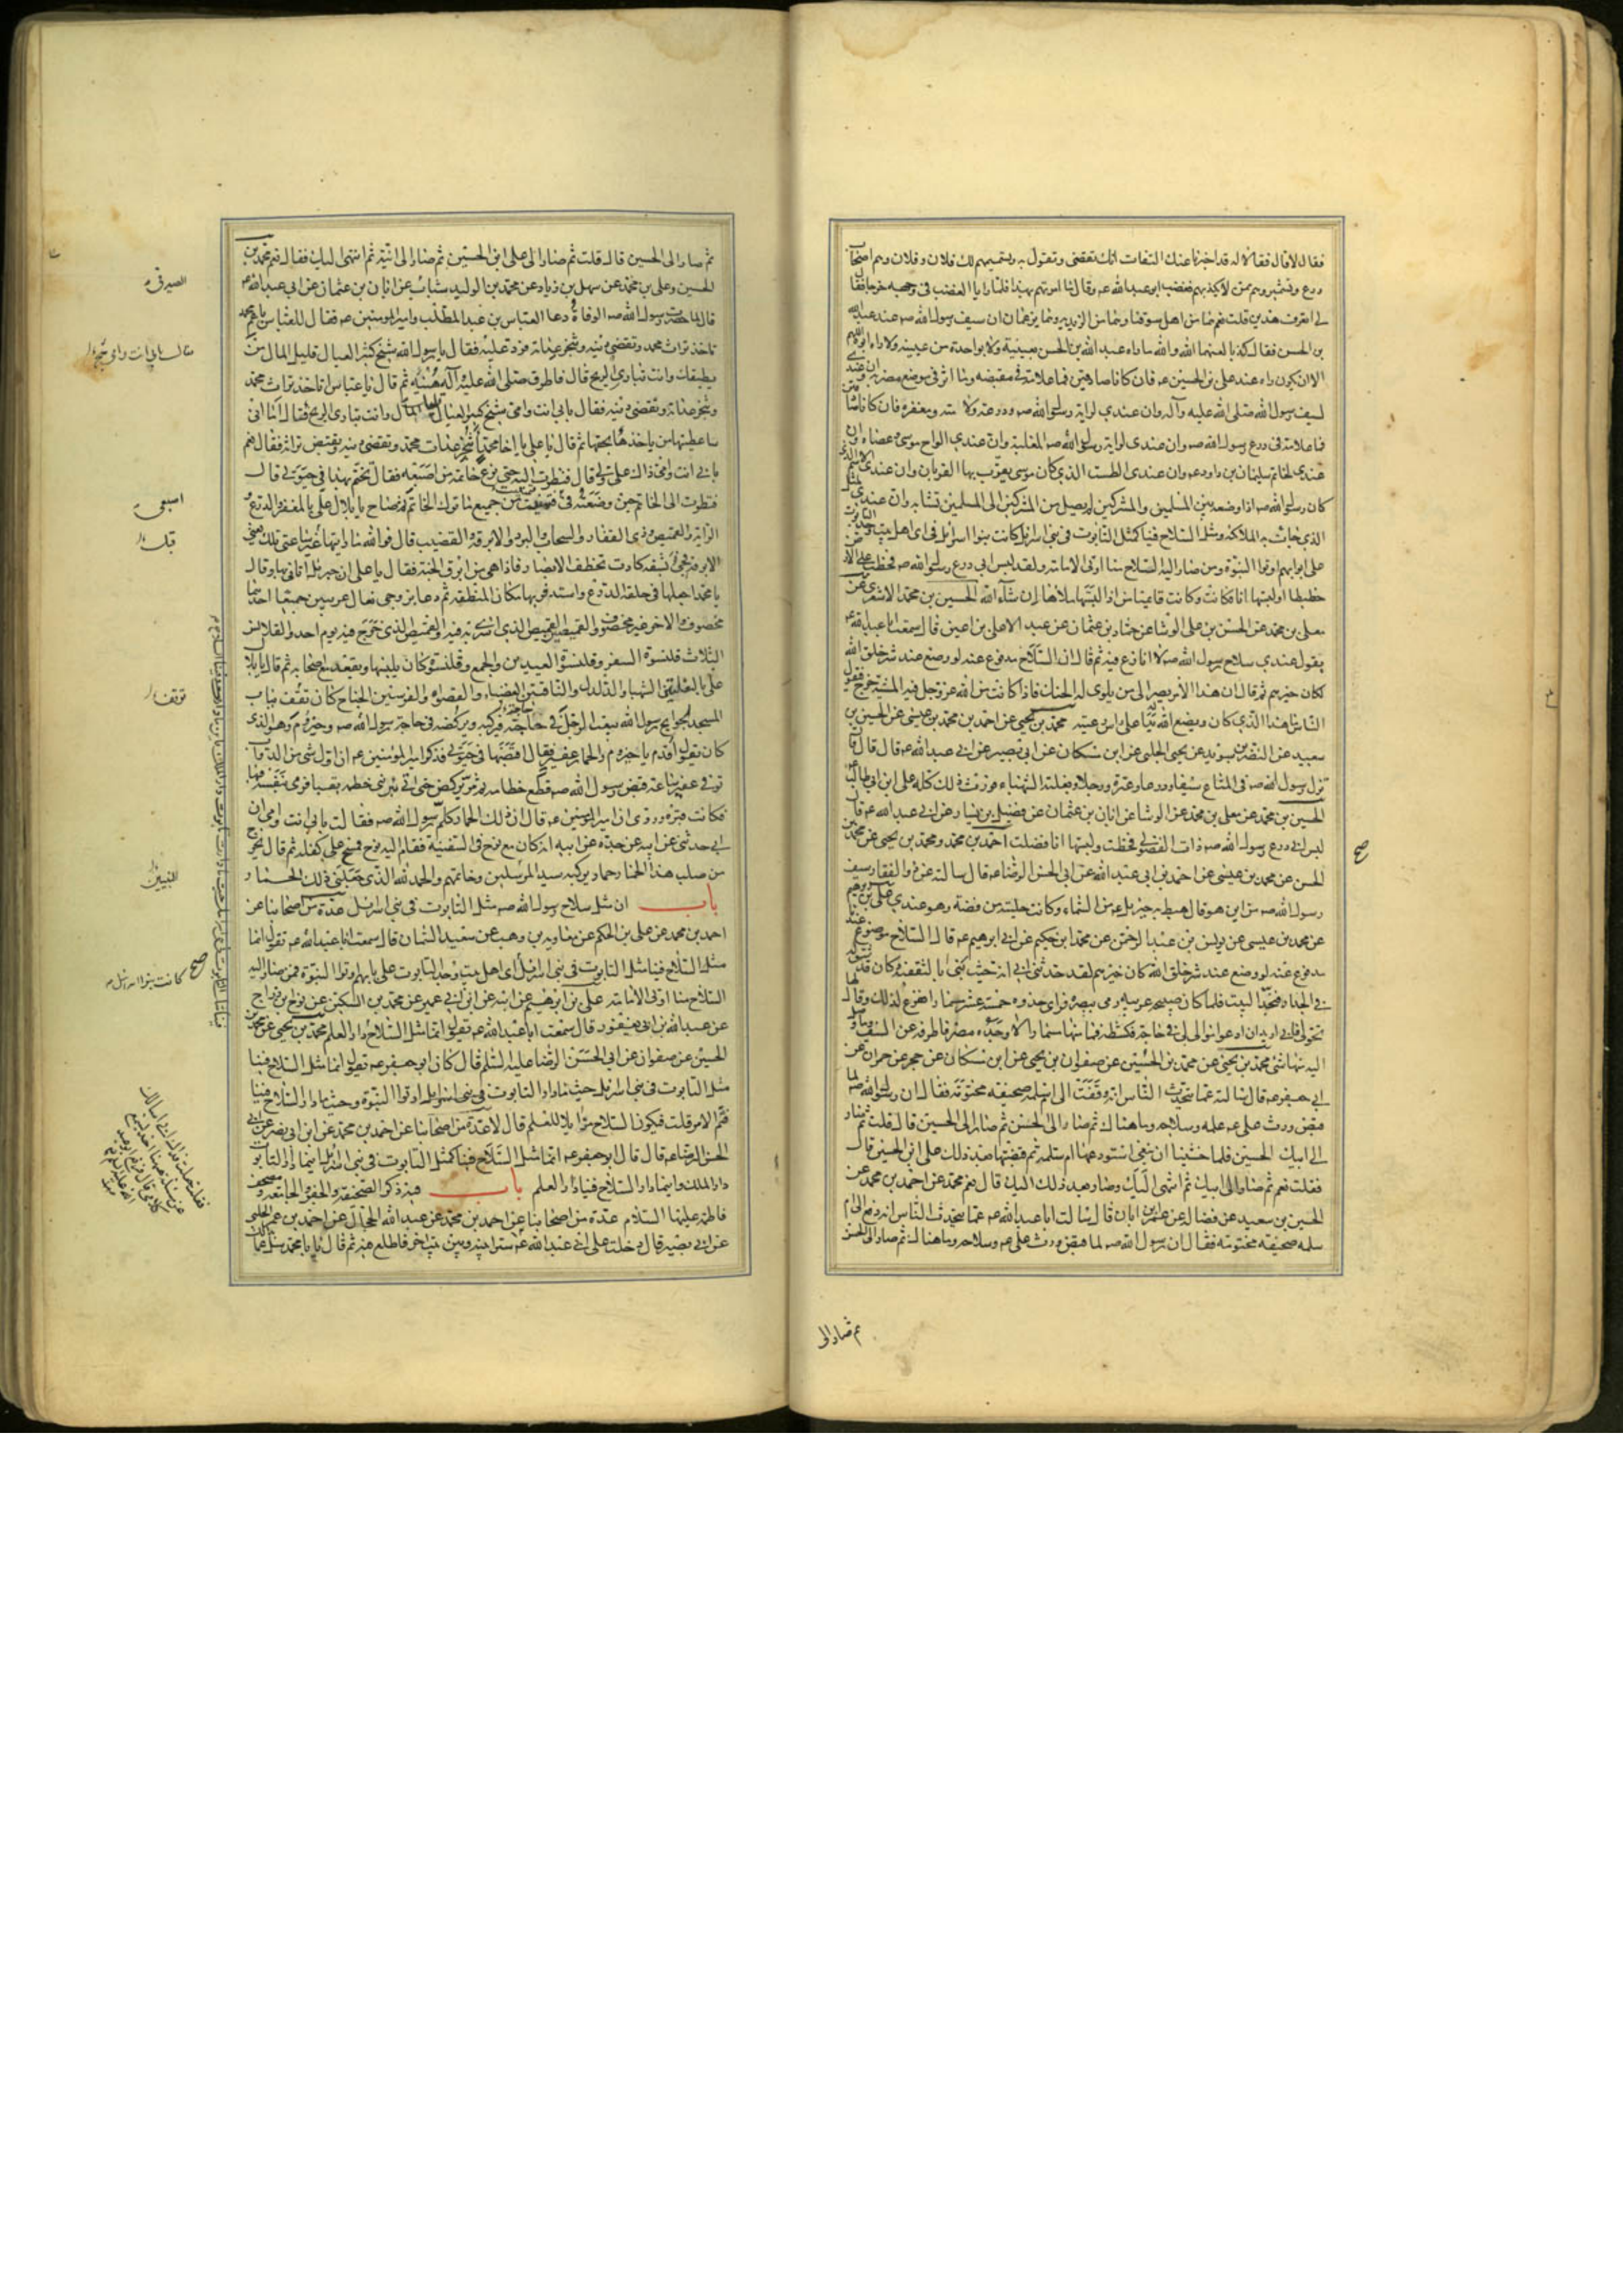 فقال لا قال فقالا له قد اخبرنا عنك الثقات انك تفتى وتقول به ونسميهم لك فلان وفلان وهم اصحاب
ورع وتشمير وهم ممن لا يكذب فغضب ابو عبد الله عه وقال ما امرتهم بهذا فلما رايا الغضب فى وجهه خرجا فقال
لى اتعرف هذين قلت نعم هما من اهل سوقنا وهما من الزيدية وهما يزعمان ان سيف رسول الله صه عند عبد الله
بن الحسن فقال كذبا لعنهما الله والله ما راه عبد الله بن الحسن بعينيه ولا بواحدة من عينيه ولا راه ابوه اللهم
الا ان يكون راه عند على بن الحسين عه فان كانا صادقين فما علامة فى مقبضه وما اثر فى موضع مضربه وان عندى
لسيف رسول الله صلى الله عليه وآله وان عندى لراية رسول الله صه ودرعه ولامته ومغفره فان كانا صادقين
فما علامة فى درع رسول الله صه وان عندى لراية رسول الله صه المغلبة وان عندى الواح موسى وعصاه وان
عندى لخاتم سليمان بن داود عه وان عندى الطست الذى كان موسى يقرب بها القربان وان عندى الاسم الذى
كان رسول الله صه اذا وضعه بين المسلمين والمشركين لم يصل من المشركين الى المسلمين نشابه وان عندى لمثل
الذى جاءت به الملائكة ومثل السلاح فينا كمثل التابوت فى بنى اسرائيل كانت بنو اسرائيل فى اى اهل بيت وجد التابوت
على ابوابهم اوتوا النبوة ومن صار اليه السلاح منا اوتى الامامة ولقد لبس ابى درع رسول الله صه فخطت على الارض
خطيطا ولبستها انا فكانت وكانت وقائمنا من اذا لبسها ملأها ان شآء الله الحسين بن محمد الاشعرى عن
معلى بن محمد عن الحسن بن على الوشا عن حماد بن عثمان عن عبد الاعلى بن اعين قال سمعت ابا عبد الله عه
يقول عندى سلاح رسول الله صه لا انازع فيه ثم قال ان السلاح مدفوع عنه لو وضع عند شر خلق الله
لكان خيرهم ثم قال ان هذا الامر يصير الى من يلوى له الحنك فاذا كانت من الله عز وجل فيه المشية خرج فيقول
الناس ما هذا الذى كان ويضع الله له يدا على راس رعيته محمد بن يحيى عن احمد بن محمد بن عيسى عن الحسين بن
سعيد عن النضر بن سويد عن يحيى الحلبى عن ابن مسكان عن ابى بصير عن ابى عبد الله عه قال قال
ترك رسول الله صه فى المتاع سيفا ودرعا وعنزة ورحلا وبغلته الشهباء فورث ذلك كله على ابن ابى طالب
الحسين بن محمد عن معلى بن محمد عن الوشا عن ابان بن عثمان عن فضيل بن يسار عن ابى عبد الله عه قال
لبس ابى درع رسول الله صه ذات الفضول فخطت ولبستها انا ففضلت احمد بن محمد ومحمد بن يحيى عن محمد بن
الحسن عن محمد بن عيسى عن احمد بن ابى عبد الله عن ابى الحسن الرضا عه قال سالته عن ذى الفقار سيف
رسول الله صه من اين هو قال هبط به جبرئيل عه من السماء وكانت حليته من فضة وهو عندى على بن ابرهيم
عن محمد بن عيسى عن يونس بن عبد الرحمن عن محمد بن حكيم عن ابى ابرهيم عه قال السلاح موضوع عندنا
مدفوع عنه لو وضع عند شر خلق الله كان خيرهم لقد حدثنى ابى انه حيث بنى بالثقفية وكان قد شق له
فى الجدار فنجد البيت فلما كان صبيحة عرسه رمى ببصره فراى حذوه خمسة عشر مسمارا ففزع لذلك وقال لها
تحولى فانى اريد ان ادعو موالى فى حاجة فكشطه فما منها مسمار الا وجده مصرفا طرفه عن السيف وما وصل
اليه منها شى محمد بن يحيى عن محمد بن الحسين عن صفوان بن يحيى عن ابن مسكان عن حجر عن حمران عن
ابى جعفر عه قال سالته عما يتحدث الناس انه دفعت الى ام سلمة صحيفة مختومة فقال ان رسول الله صه لما
قبض ورث على عه علمه وسلاحه وما هناك ثم صار الى الحسن ثم صار الى الحسين قال قلت ثم صار
الى ابيك الحسين فلما خشينا ان نغشى استودعها ام سلمة ثم قبضها بعد ذلك على ابن الحسين قال
فقلت نعم ثم صار الى ابيك ثم انتهى اليك وصار بعد ذلك اليك قال نعم محمد عن احمد بن محمد عن
الحسين بن سعيد عن فضالة عن عمر بن ابان قال سالت ابا عبد الله عه عما يتحدث الناس انه دفع الى ام
سلمه صحيفة مختومة فقال ان رسول الله صه لما قبض ورث على عه علمه وسلاحه وما هناك ثم صار الى الحسن
ثم صار الى
صح
ثم صار الى الحسين قال قلت ثم صار الى على ابن الحسين ثم صار الى ابنه ثم انتهى اليك فقال نعم محمد بن
الحسين وعلى بن محمد عن سهل بن زياد عن محمد بن الوليد شباب عن ابان بن عثمان عن ابى عبد الله عه
قال لما حضرت رسول الله صه الوفاة دعا العباس بن عبد المطلب وامير المومنين عه فقال للعباس يا عم محمد
تاخذ تراث محمد وتقضى دينه وتنجز عداته فرد عليه فقال يا رسول الله شيخ كثير العيال قليل المال من
يطيقك وانت تبارى الريح قال فاطرق صلى الله عليه وآله هنيئة ثم قال يا عباس اتاخذ تراث محمد
وتنجز عداته وتقضى دينه فقال بابى انت وامى شيخ كثير العيال قليل المال وانت تبارى الريح فقال اما انى
ساعطيها من ياخذها بحقها ثم قال يا على يا اخا محمد اتنجز عدات محمد وتقضى دينه وتقبض تراثه فقال نعم
بابى انت وامى ذاك على ولى قال فنظرت اليه حتى نزع خاتمه من اصبعه فقال تختم بهذا فى حيوتى قال
فنظرت الى الخاتم حين وضعته فى اصبعى فتمنيت من جميع ما ترك الخاتم ثم صاح يا بلال على بالمغفر والدرع
والراية والقميص وذى الفقار والسحاب والبرد والابرقة والقضيب قال فوالله ما رايتها غير ساعتى تلك يعنى
الابرقة فجىء بشقة كادت تخطف الابصار فاذا هى من ابرق الجنة فقال يا على ان جبرئيل اتانى بها وقال
يا محمد اجعلها فى حلقة الدرع واستدفر بها مكان المنطقة ثم دعا بزوجى نعال عربيين جميعا احدهما
مخصوف والاخر غير مخصوف والقميصين القميص الذى اسرى به فيه والقميص الذى خرج فيه يوم احد والقلانس
الثلاث قلنسوة السفر وقلنسوة العيدين والجمع وقلنسوة كان يلبسها ويقعد مع اصحابه ثم قال يا بلال
على بالبغلتين الشهباء والدلدل والناقتين العضباء والقصواء والفرسين الجناح كانت توقف بباب
المسجد لحوايج رسول الله يبعث الرجل فى حاجته فيركبه ويركضه فى حاجة رسول الله صه وحيزوم وهو الذى
كان يقول اقدم يا حيزوم والحمار عفير فقال اقبضها فى حيوتى فذكر امير المومنين عه ان اول شى من الدواب
توفى عفير ساعة قبض رسول الله صه قطع خطامه ثم مر يركض حتى اتى بئر بنى خطمة بقبا فرمى بنفسه فيها
فكانت قبره وروى ان امير المومنين عه قال ان ذلك الحمار كلم رسول الله صه فقال بابى انت وامى ان
ابى حدثنى عن ابيه عن جده عن ابيه انه كان مع نوح فى السفينة فقام اليه نوح فمسح على كفله ثم قال يخرج
من صلب هذا الحمار حمار يركبه سيد المرسلين وخاتمهم والحمد لله الذى جعلنى ذلك الحمار
باب ان مثل سلاح رسول الله صه مثل التابوت فى بنى اسرائيل عدة من اصحابنا عن
احمد بن محمد عن على بن الحكم عن معاوية بن وهب عن سعيد السمان قال سمعت ابا عبد الله عه يقول انما
مثل السلاح فينا مثل التابوت فى بنى اسرائيل اى اهل بيت وجد التابوت على بابهم اوتوا النبوة فمن صار اليه
السلاح منا اوتى الامامة على بن ابرهيم عن ابيه عن ابن ابى عمير عن محمد بن السكين عن نوح بن دراج
عن عبد الله بن ابى يعفور قال سمعت ابا عبد الله عه يقول انما مثل السلاح دار العلم محمد بن يحيى عن محمد
الحسين عن صفوان عن ابى الحسن الرضا عليه السلم قال كان ابو جعفر عه يقول انما مثل السلاح فينا
مثل التابوت فى بنى اسرائيل حيث ما دار التابوت فى بنى اسرائيل اوتوا النبوة وحيث ما دار السلاح فينا
فثم الامر قلت فيكون السلاح مزايلا للعلم قال لا عدة من اصحابنا عن احمد بن محمد عن ابن ابى نصر عن ابى
الحسن الرضا عه قال قال ابو جعفر عه انما مثل السلاح فينا كمثل التابوت فى بنى اسرائيل اينما دار التابوت
دار الملك واينما دار السلاح فينا دار العلم باب فيه ذكر الصحيفة والجفر والجامعة ومصحف
فاطمة عليها السلام عدة من اصحابنا عن احمد بن محمد عن عبد الله الحجال عن احمد بن عمر الحلبى
عن ابى بصير قال دخلت على ابى عبد الله عه سترا بينه وبين بيت اخر فاطلع فيه ثم قال يا با محمد سل عما
الصيرفى
فقال بابى انت وامى
اصبعى
قبل
توقف
النبيين
صح كانت بنو اسرائيل